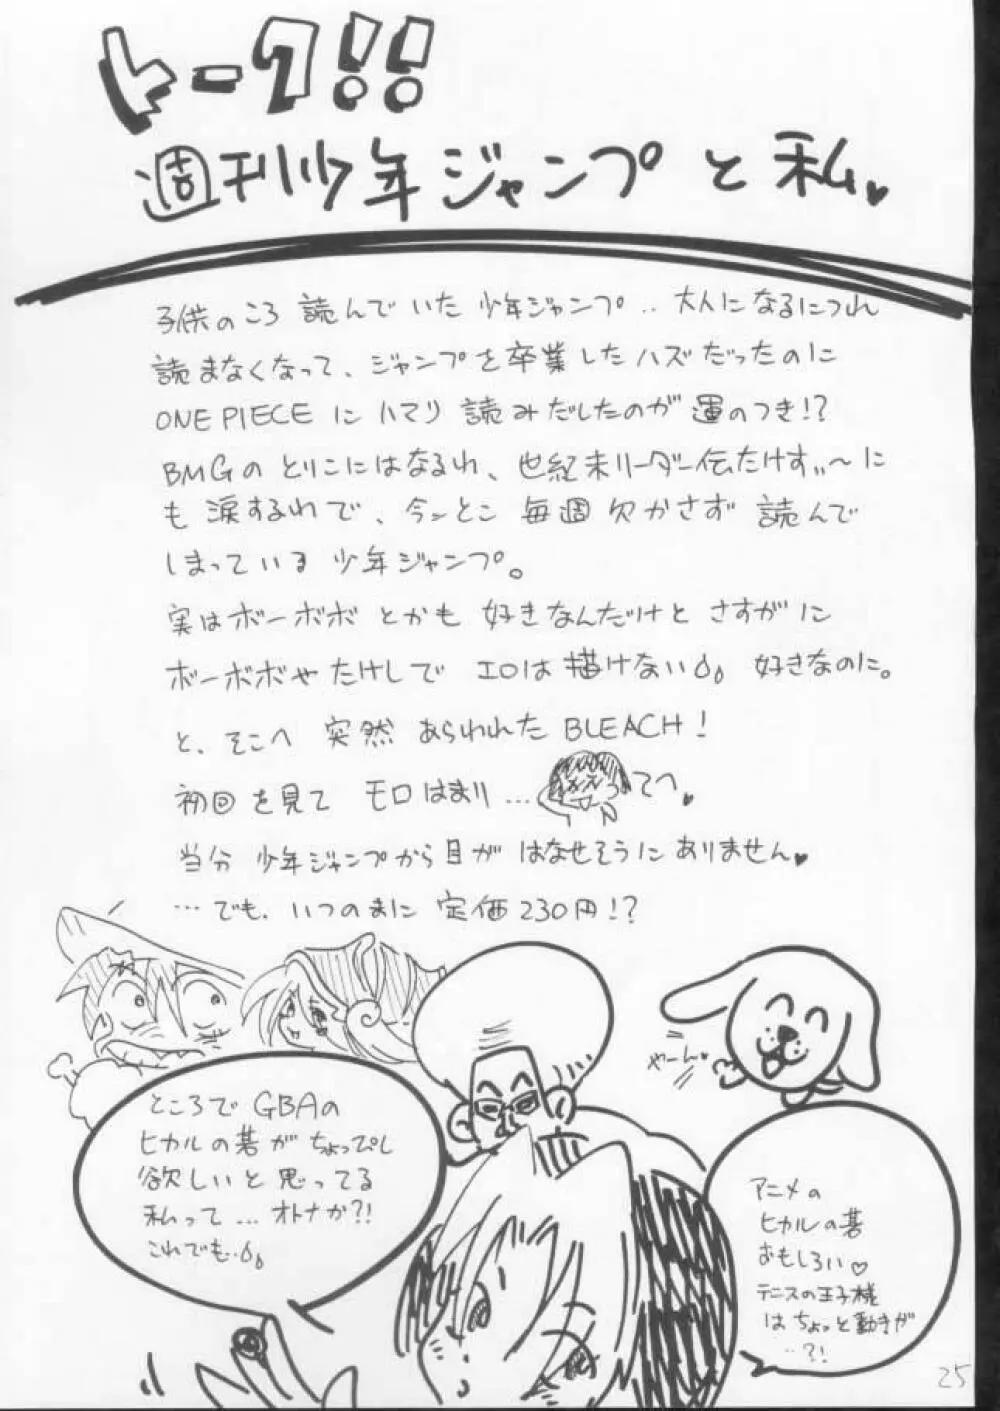 トーク!!
週刊少年ジャンプと私♥
子供のころ 読んでいた 少年ジャンプ‥大人になるにつれ
読まなくなって、ジャンプを卒業したハズだったのに
ONE PIECEにハマり 読みだしたのが 運のつき!?
BMGの とりこにはなるわ、世紀末リーダー伝たけすぃ〜に
も 涙するわで、今んとこ 毎週 欠かさず 読んで
しまっている 少年ジャンプ。
実はボーボボ とかも 好きなんだけど さすがに
ボーボボや たけしで エロは描けない 好きなのに。
と、そこへ 突然 あらわれた BLEACH!
初回を見て モロはまり… てへ♥
当分 少年ジャンプから 目が はなせそうに ありません♥
…でも、いつのまに 定価230円!?
やーん♥
ところで GBAの
ヒカルの碁が ちょっぴし
欲しいと 思ってる
私って … オトナか?!
これでも‥
アニメの
ヒカルの碁
おもしろい♡
テニスの王子様
は ちょっと 動きが
‥?!
25